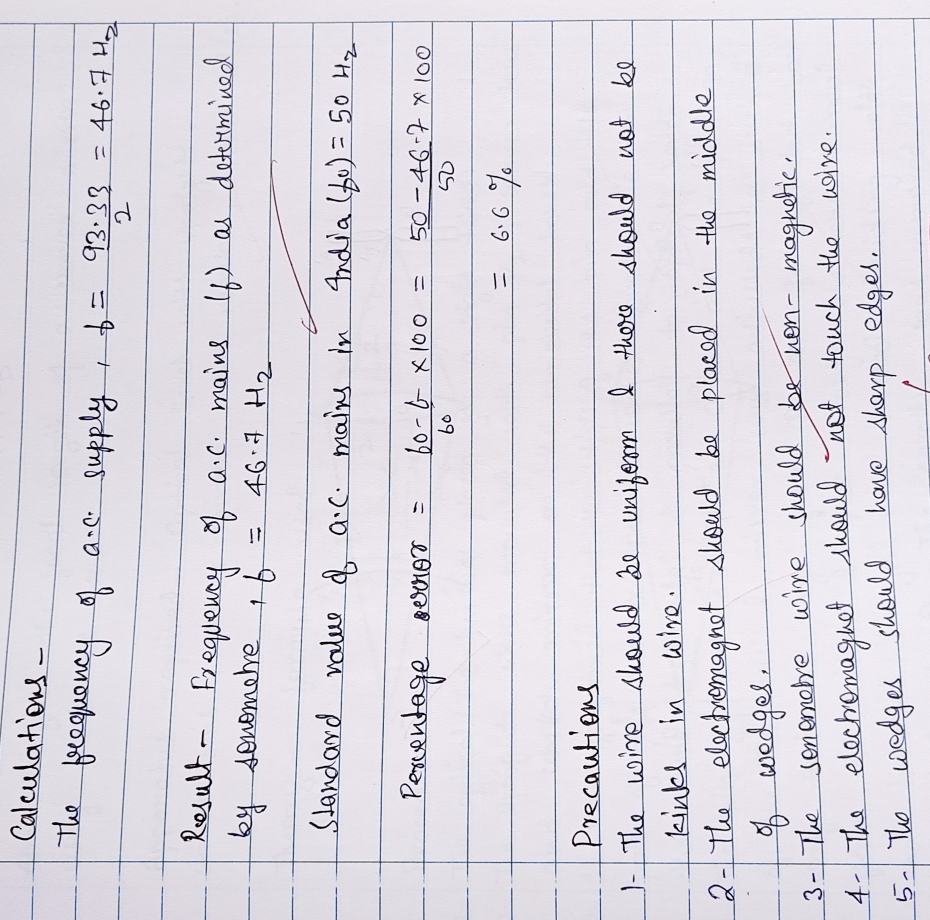 Calculations -
The frequency of a.c. supply, f = 93.33/2 = 46.7 Hz
Result - Frequency of a.c. mains (f) as determined
by sonometre, f = 46.7 Hz
Standard value of a.c. mains in India (f0) = 50 Hz
Percentage error = f0-f/f0 x100 = 50-46.7/50 x100
= 6.6 %
Precautions
1- The wire should be uniform & there should not be
kinks in wire.
2- The electromagnet should be placed in the middle
of wedges.
3- The sonometre wire should be non-magnetic.
4- The electromagnet should not touch the wire.
5- The wedges should have sharp edges.